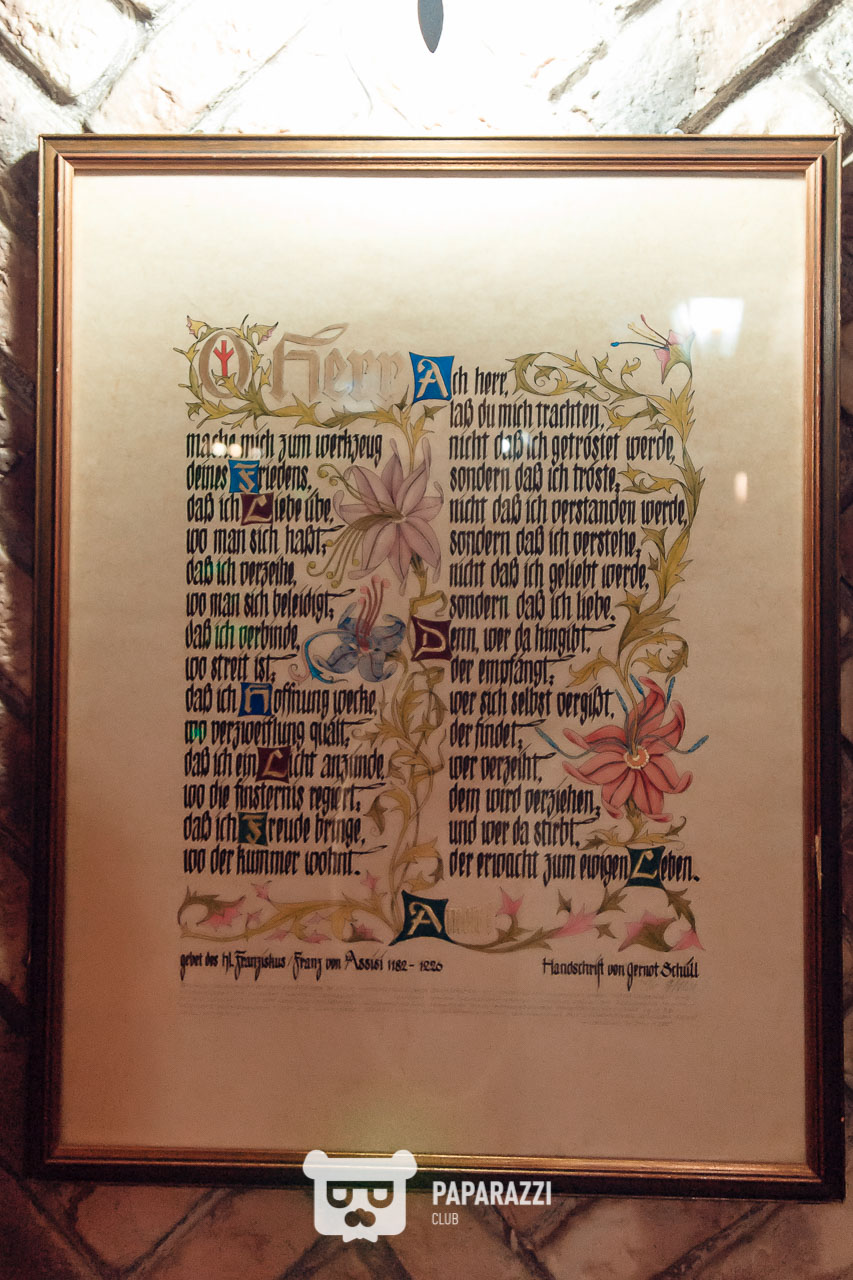 O Herr
mache mich zum werkzeug
deines Friedens,
daß ich Liebe übe,
wo man sich haßt;
daß ich verzeihe,
wo man sich beleidigt;
daß ich verbinde,
wo streit ist;
daß ich Hoffnung wecke,
wo verzweiflung quält;
daß ich ein Licht anzünde,
wo die finsternis regiert;
daß ich Freude bringe,
wo der kummer wohnt.
Ach herr,
laß du mich trachten,
nicht daß ich getröstet werde,
sondern daß ich tröste;
nicht daß ich verstanden werde,
sondern daß ich verstehe;
nicht daß ich geliebt werde,
sondern daß ich liebe.
Denn, wer da hingibt,
der empfängt;
wer sich selbst vergißt,
der findet;
wer verzeiht,
dem wird verziehen;
und wer da stirbt,
der erwacht zum ewigen Leben.
Amen
gebet des hl. Franziskus / Franz von Assisi 1182 - 1226
Handschrift von gernot Schüll
PAPARAZZI
CLUB